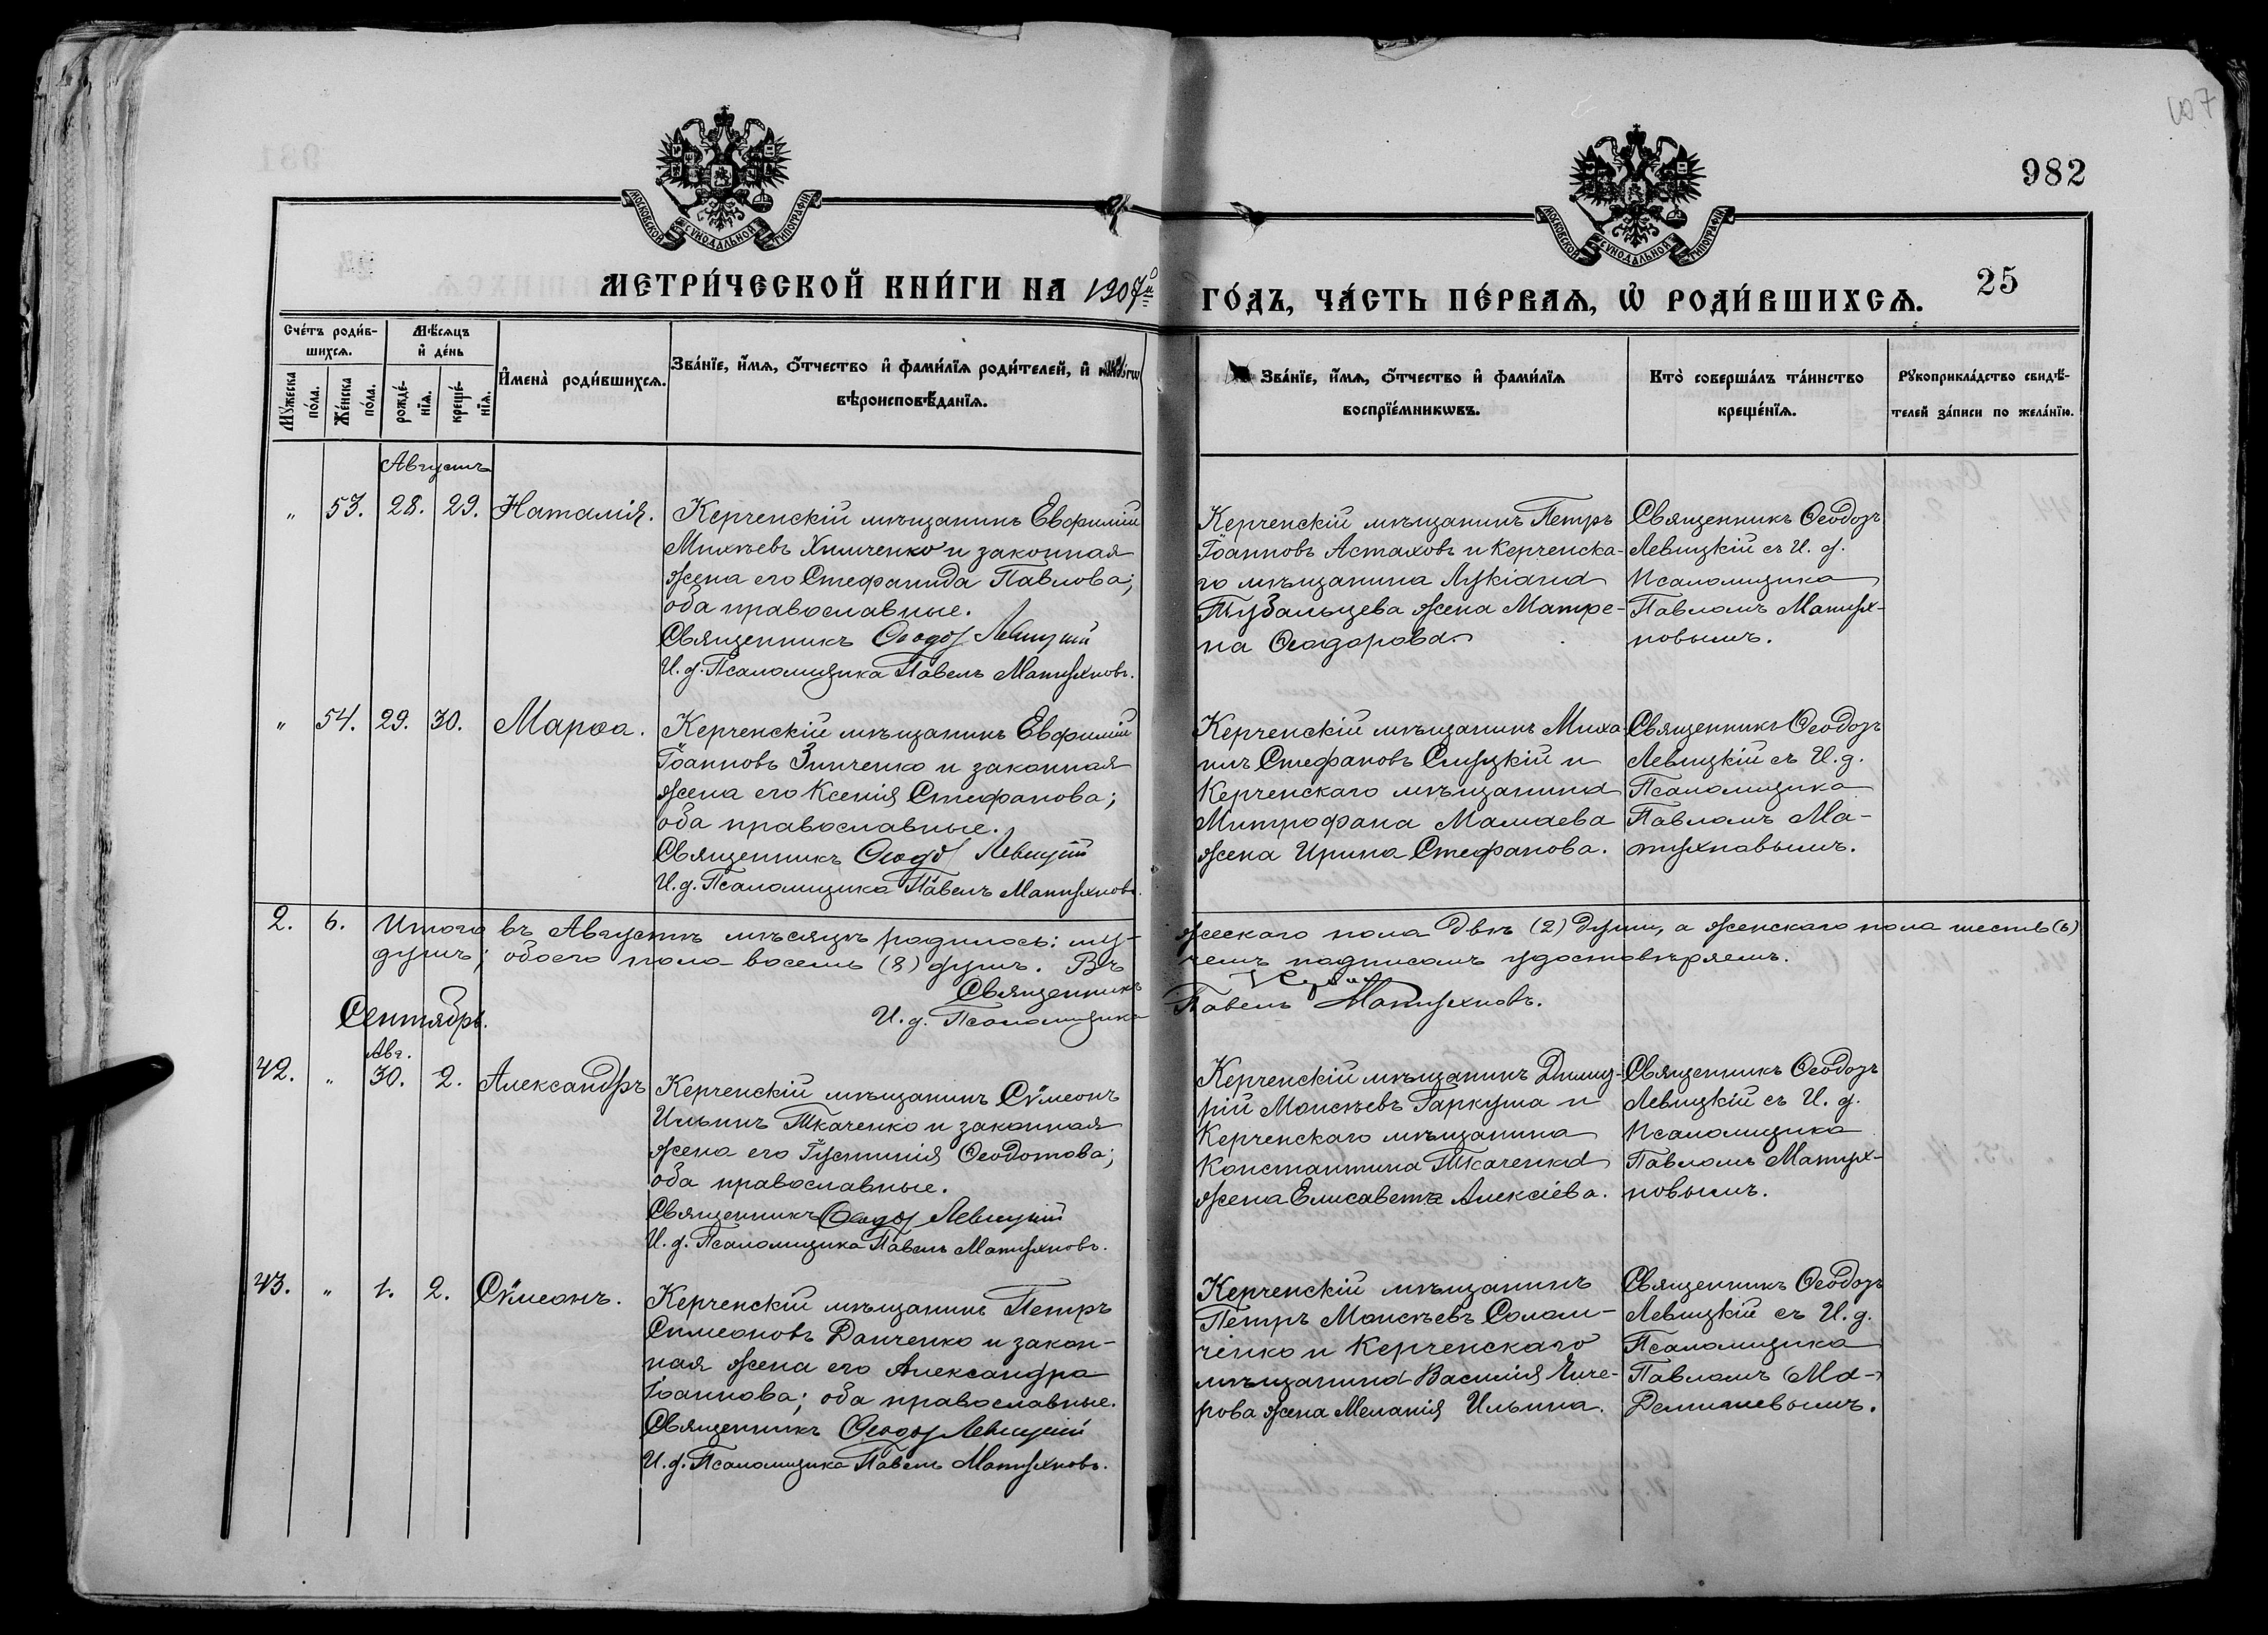 982
25
МЕТРИ́ЧЕСКОЙ КНИ́ГИ НА 1907й ГО́ДЪ, ЧА́СТЬ ПЕ́РВАѦ, Ѡ РОДИ́ВШИХСѦ.
МОСКОВСКОЙ СѴНОДАЛЬНОЙ ТИПОГРАФІИ
МОСКОВСКОЙ СѴНОДАЛЬНОЙ ТИПОГРАФІИ
Сче́тъ роди́в-
шихсѧ.
Мѣ́сѧцъ
и҆ де́нь
Мꙋ́жеска по́ла.
Же́нска по́ла.
рожде́-
нїѧ.
креще́-
нїѧ.
И҆мена̀ роди́вшихсѧ.
Зва́нїе, и҆́мѧ, ѻ҆́тчество и҆ фами́лїѧ роди́телей, и҆
вѣроисповѣ́данїѧ.
Зва́нїе, и҆́мѧ, ѻ҆́тчество и҆ фами́лїѧ
воспрїе́мникѡвъ.
Кто̀ соверша́лъ та́инство
креще́нїѧ.
Рꙋкоприкла́дство свидѣ́-
телей за́писи по жела́нїю.
Августъ
„ 53. 28. 29. Наталія.
Керченскій мѣщанинъ Евфимій
Михѣевъ Химченко и законная
жена его Стефанида Павлова;
оба православные.
Священникъ Ѳеодоз Левицкій
И. д. Псаломщика Павелъ Матухновъ.
Керченскій мѣщанинъ Петръ
Іоанновъ Астаховъ и Керченска-
го мѣщанина Лукіана
Тубальцева жена Матре-
на Ѳеодорова.
Священникъ Ѳеодозъ
Левицкій съ И. д.
Псаломщика
Павломъ Матух-
новымъ.
„ 54. 29. 30. Марѳа.
Керченскій мѣщанинъ Евфимій
Іоанновъ Зинченко и законная
жена его Ксенія Стефанова;
оба православные.
Священникъ Ѳеодоз Левицкій
И. д. Псаломщика Павелъ Матухновъ.
Керченскій мѣщанинъ Миха
илъ Стефановъ Слуцкій и
Керченскаго мѣщанина
Митрофана Мамаева
жена Ирина Стефанова.
Священникъ Ѳеодозъ
Левицкій съ И. д.
Псаломщика
Павломъ Ма-
тухновымъ.
2. 6. Итого въ Августѣ мѣсяцѣ родилось: му- жескаго пола двѣ (2) души, а женскаго пола шесть (6)
душъ; обоего пола восемь (8) душъ. Въ чемъ подписомъ удостовѣряемъ.
Священникъ
И. д. Псаломщика Павелъ Матухновъ.
Сентябрь.
Авг.
42. „ 30. 2. Александръ
Керченскій мѣщанинъ Сѵмеонъ
Ильинъ Ткаченко и законная
жена его Іустинія Ѳеодотова;
оба православные.
Священникъ Ѳеодоз Левицкій
И. д. Псаломщика Павелъ Матухновъ.
Керченскій мѣщанинъ Димит-
рій Моисѣевъ Гаркуша и
Керченскаго мѣщанина
Константина Ткаченка
жена Елисавета Алексіева.
Священникъ Ѳеодозъ
Левицкій съ И. д.
Псаломщика
Павломъ Матух-
новымъ.
43. „ 1. 2. Сѵмеонъ.
Керченскій мѣщанинъ Петръ
Симеоновъ Данченко и закон-
ная жена его Александра
Іоаннова; оба православные.
Священникъ Ѳеодоз Левицкій
И. д. Псаломщика Павелъ Матухновъ.
Керченскій мѣщанинъ
Петръ Моисѣевъ Солом-
ченко и Керченскаго
мѣщанина Василія
жена Меланія Ильина.
Священникъ Ѳеодозъ
Левицкій съ И. д.
Псаломщика
Павломъ